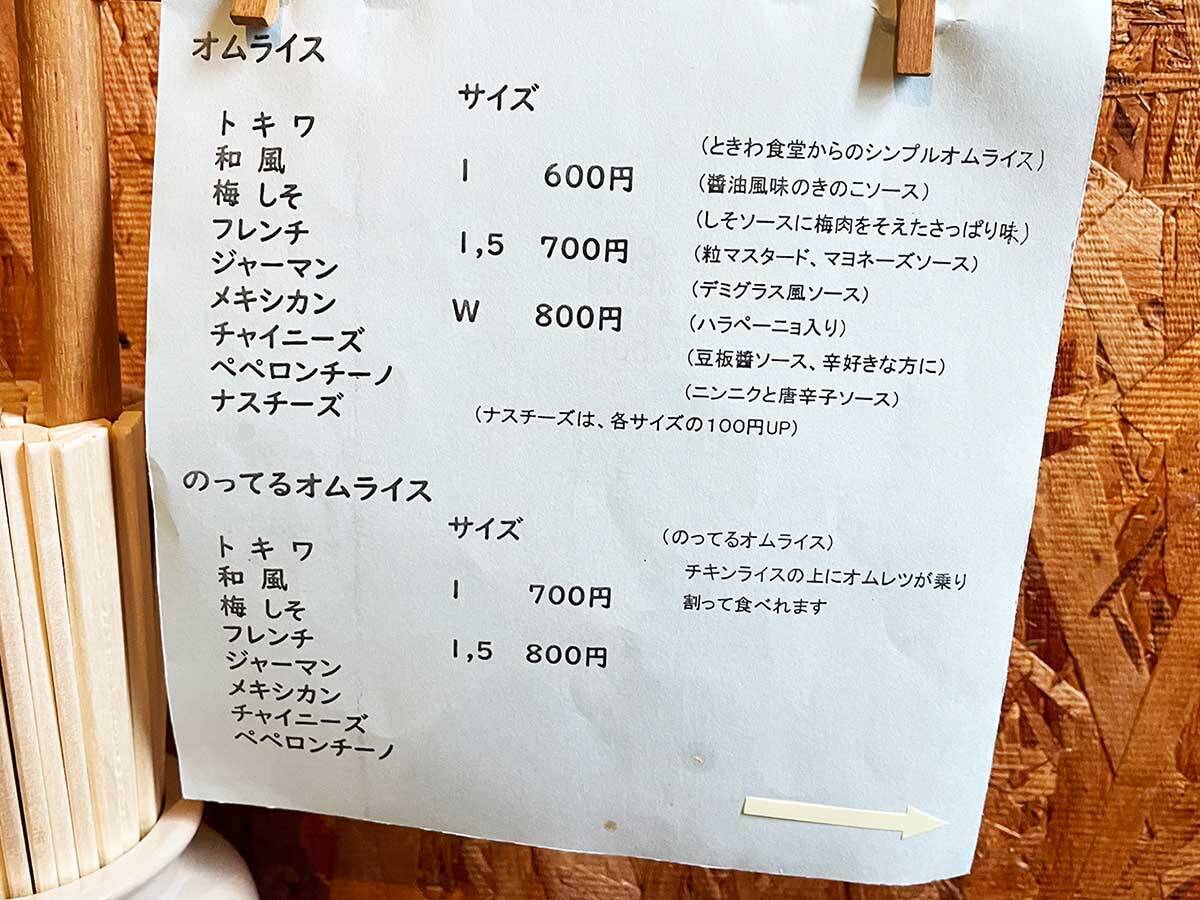 オムライス
サイズ
トキワ
和風
梅しそ
フレンチ
ジャーマン
メキシカン
チャイニーズ
ペペロンチーノ
ナスチーズ
1 600円
1,5 700円
W 800円
(ときわ食堂からのシンプルオムライス)
(醤油風味のきのこソース)
(しそソースに梅肉をそえたさっぱり味)
(粒マスタード、マヨネーズソース)
(デミグラス風ソース)
(ハラペーニョ入り)
(豆板醤ソース、辛好きな方に)
(ニンニクと唐辛子ソース)
(ナスチーズは、各サイズの100円UP)
のってるオムライス
サイズ
トキワ
和風
梅しそ
フレンチ
ジャーマン
メキシカン
チャイニーズ
ペペロンチーノ
1 700円
1,5 800円
(のってるオムライス)
チキンライスの上にオムレツが乗り
割って食べれます